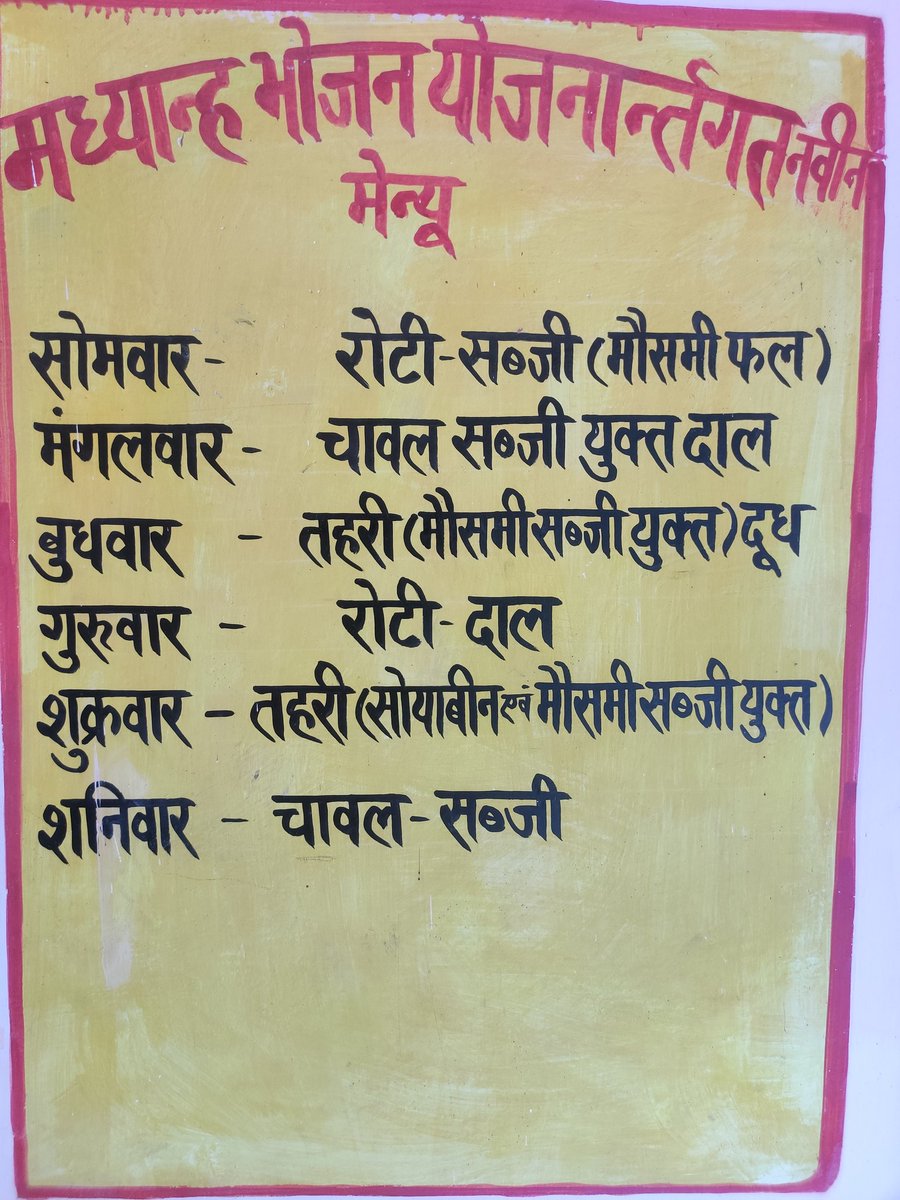 मध्यान्ह भोजन योजनार्न्तगत नवीन
मेन्यू
सोमवार - रोटी-सब्जी (मौसमी फल)
मंगलवार - चावल सब्जी युक्त दाल
बुधवार - तहरी (मौसमी सब्जी युक्त) दूध
गुरुवार - रोटी-दाल
शुक्रवार - तहरी (सोयाबीन एवं मौसमी सब्जी युक्त)
शनिवार - चावल-सब्जी